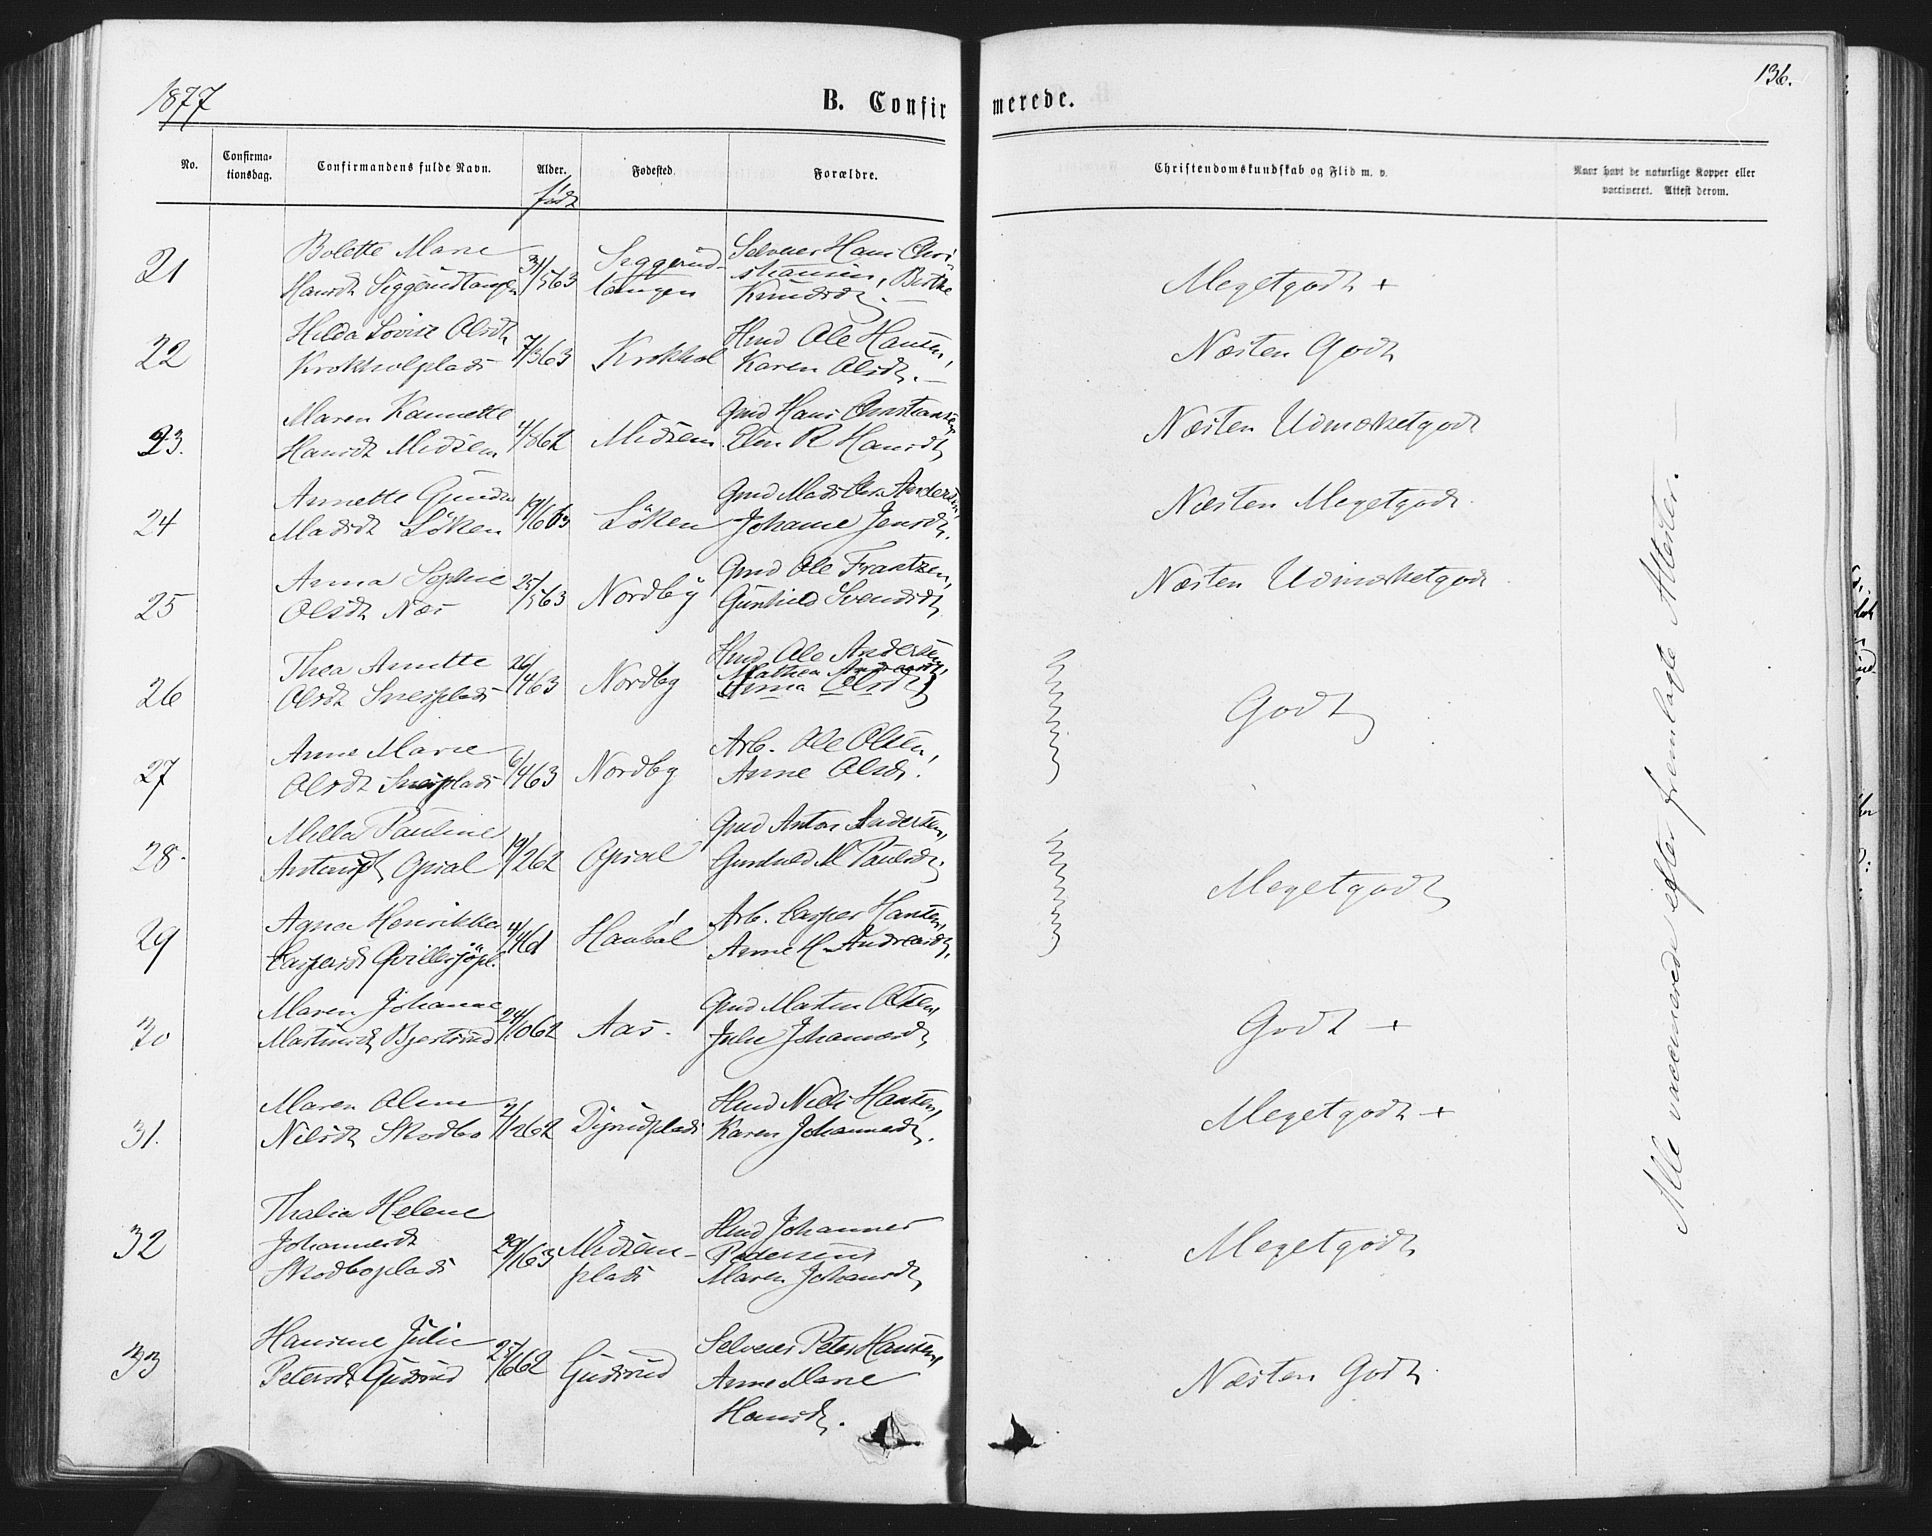 1877
B. Confirmerede.
136.
No.
Confirmationsdag.
Confirmandens fulde Navn.
Alder.
født
Fødested.
Forældre.
Christendomskundskab og Flid m. v.
Naar havt de naturlige Kopper eller vaccineret. Attest derom.
21
Bolette Marie
Hansdt Siggerudtangen
31/5 63
Siggerud-
tangen
Selveier Hans Chri-
stiansen, Birthe
Knudsdt.
Megetgodt +
22
Hilda Lovise Olsdt
Krokholplads
7/3 63
Krokhol
Hmd Ole Hansen,
Karen Olsdt. —
Næsten Godt
23.
Maren Hannette
Hansdt Midsem
62
Midsem
Gmd Hans Christiansen
Elen R Hansdt
Næsten Udmærketgodt
24
Annette Gunda
Madsdt Löken
19/6 63
Löken
Gmd Mads Chr. Andersen,
Johanne Jensdt.
Næsten Megetgodt
25
Anna Sophie
Olsdt Næs
25/5 63
Nordby
Gmd Ole Frantzen,
Gunhild Svendsdt
Næsten Udmærketgodt
26
Thea Annette
Olsdt Sneisplads
26/4 63
Nordby
Hmd Ole Andersen,
Mathea Andreasdt,
Anna Olsdt
Godt
27
Anne Marie
Olsdt Sneisplads
6/4 63
Nordby
Arb. Ole Olsen,
Anne Olsdt.
28.
Milla Pauline
Antonsdt Opsal
19/2 62
Opsal
Gmd Anton Andersen,
Gunhild M Paulsdt.
Megetgodt
29
Agnes Henrikke
Caspersdt Qvillesjöpl.
4/4 61
Haukål
Arb. Casper Hansen,
Anne H. Andreasdt.
30
Maren Johanne
Martinsdt Bjerkerud
24/10 62
Aas.
Gmd Martin Olsen,
Julie Johannesdt
Godt +
31.
Maren Oline
Nilsdt Skodbo
2/12 62
Dyrudplads
Hmd Nils Hansen,
Karen Johannesdt.
Megetgodt +
32
Thalia Helene
Johannesdt
Skodboplads
29/1 63
Midsem-
plads
Hmd Johannes
Pedersen,
Maren Johansdt
Megetgodt
33
Hansine Julie
Petersdt Gudsrud
25/6 62
Gudsrud
Selveier Peter Hansen,
Anne Marie
Hansdt.
Næsten Godt
Alle vaccinerede efter fremlagte Attester. —